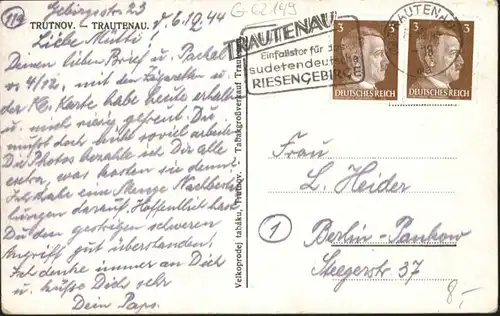 119
Gebirgsstr. 23
G 62149
TRUTNOV. — TRAUTENAU.
6.10.44
Liebe Mutti
Deinen lieben Brief u. Packet
v. 4/12, mit den Zigaretten u.
der Kl. Karte habe heute erhalten
u. mich riesig gefreut. Du
mußt doch heute soviel arbeiten
Die Photos bezahle ich Dir alle
extra, was kosten sie denn?
habe eine Menge
darauf. Hoffentlich hast
Du den gestrigen schweren
Angriff gut überstanden.
Ich denke immer an Dich
u. küsse Dich sehr
Dein Papa.
Velkoprodej tabáku, Trutnov. - Tabakgroßverkauf Trautenau
TRAUTENAU
Einfallstor für das
sudetendeutsche
RIESENGEBIRGE
TRAUTENAU
18
3
3
DEUTSCHES REICH
DEUTSCHES REICH
Frau
L. Heider
1
Berlin-Pankow
Steegerstr. 37
8,-